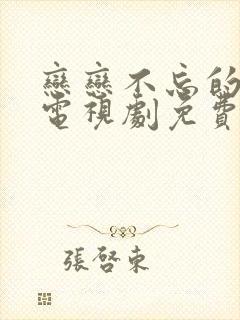 戀戀不忘的
電視劇免費
張啓東